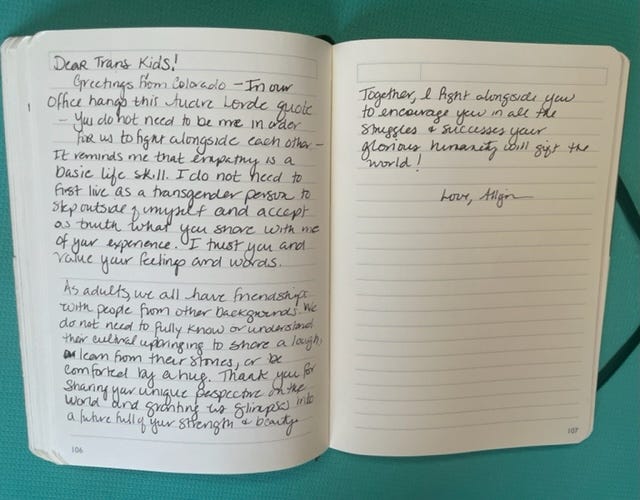 Dear Trans Kids!
Greetings from Colorado – In our
office hangs this Audre Lorde quote
– You do not need to be me in order
for us to fight alongside each other. –
It reminds me that empathy is a
basic life skill. I do not need to
first live as a transgender person to
step outside of myself and accept
as truth what you share with me
of your experience. I trust you and
value your feelings and words.
As adults, we all have friendships
with people from other backgrounds. We
do not need to fully know or understand
their cultural upbringing to share a laugh,
learn from their stories, or be
comforted by a hug. Thank you for
sharing your unique perspective on the
world and granting us glimpses into
a future full of your strength & beauty.
106
Together, I fight alongside you
to encourage you in all the
struggles & successes your
glorious humanity will gift the
world!
Love,
107